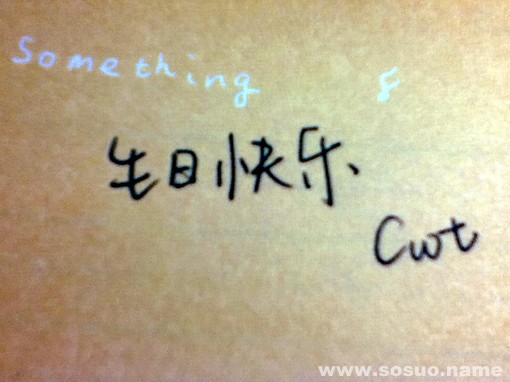 Something 8
生日快乐
Cwt
www.sosuo.name